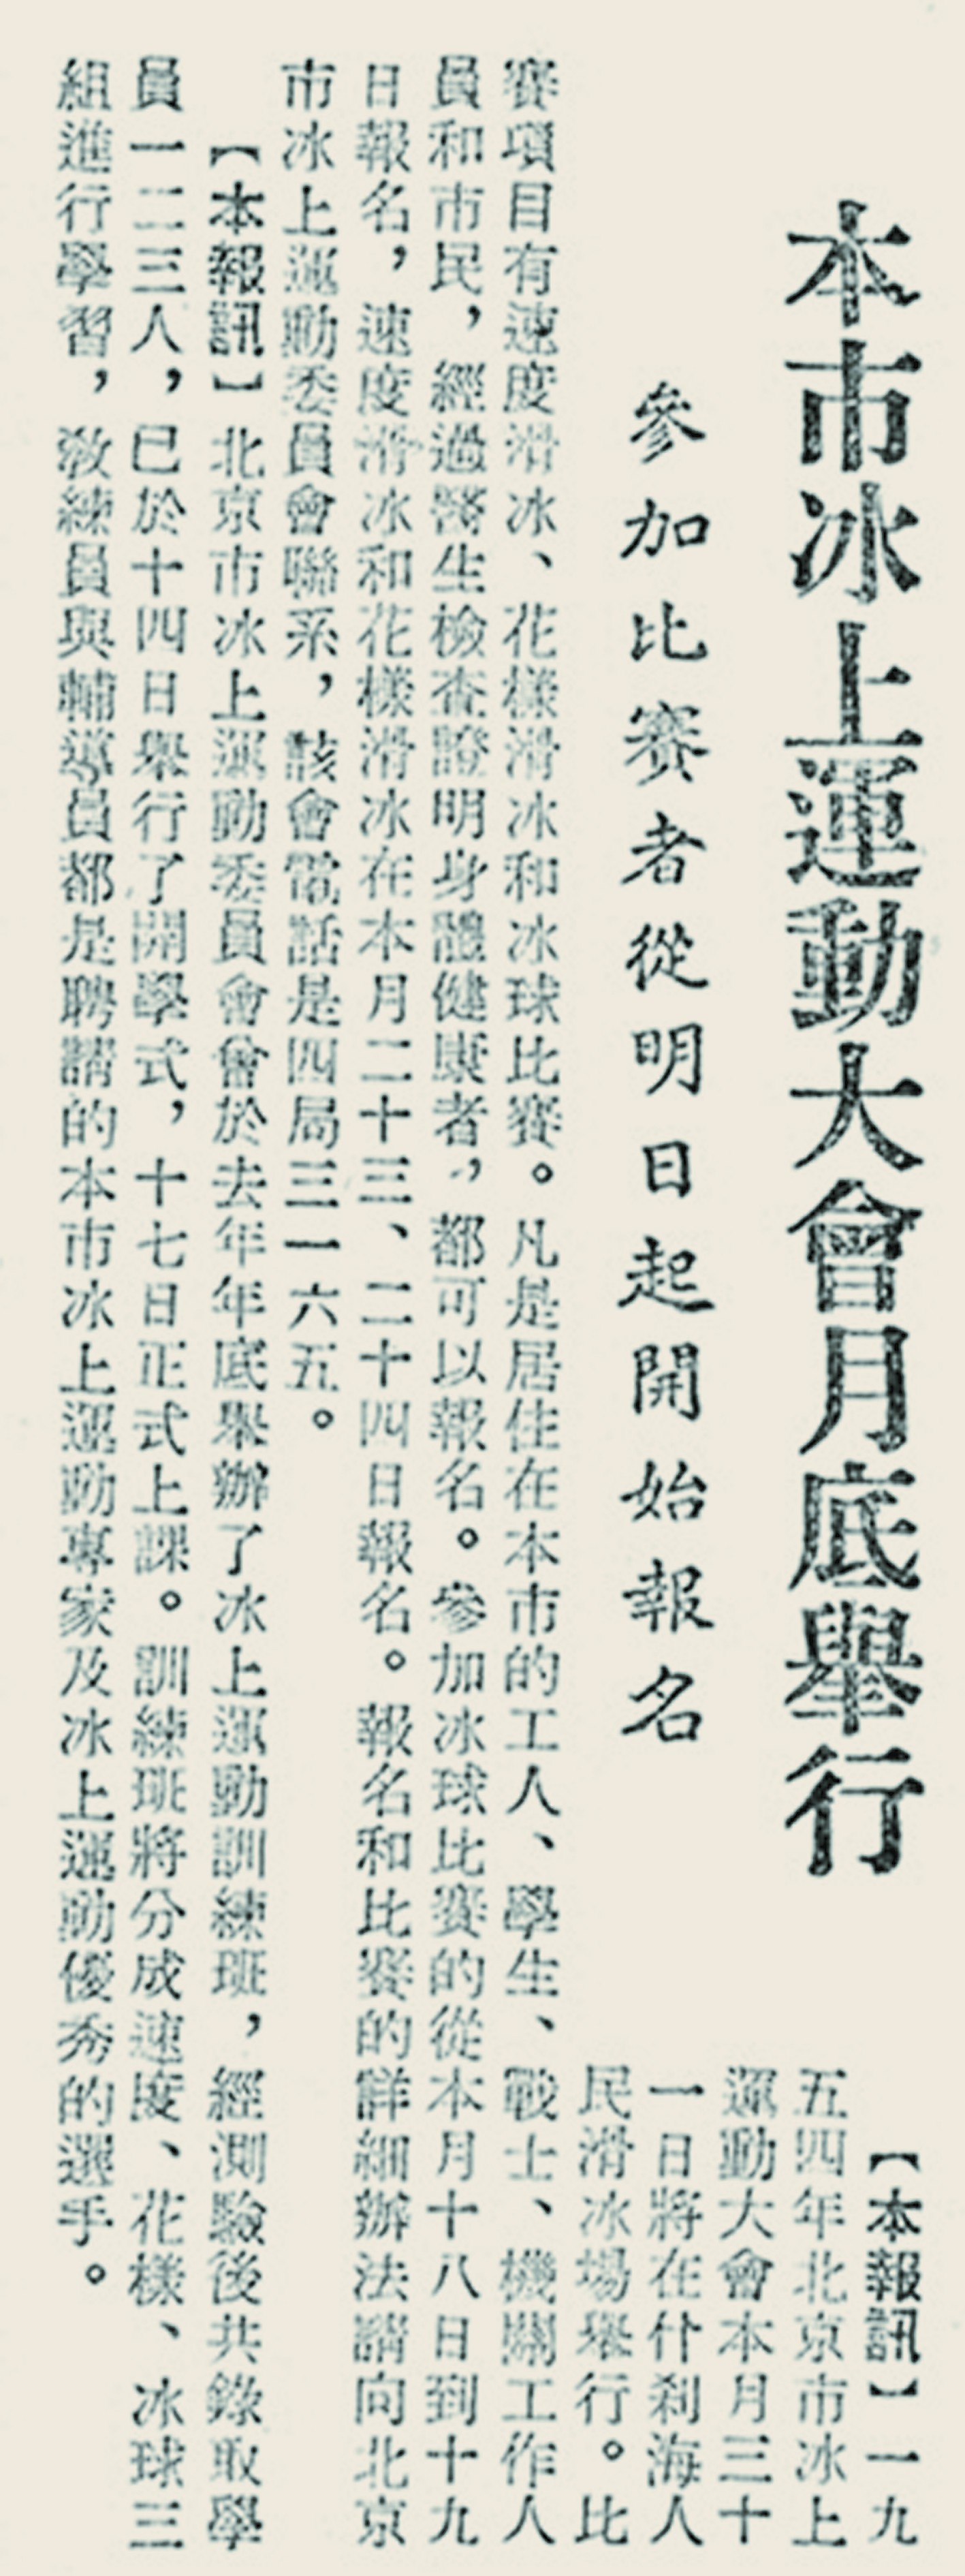 本市冰上運動大會月底舉行
參加比賽者從明日起開始報名
【本報訊】一九
五四年北京市冰上
運動大會本月三十
一日將在什刹海人
民滑冰場舉行。比
賽項目有速度滑冰、花樣滑冰和冰球比賽。凡是居住在本市的工人、學生、戰士、機關工作人
員和市民，經過醫生檢查證明身體健康者，都可以報名。參加冰球比賽的從本月十八日到十九
日報名，速度滑冰和花樣滑冰在本月二十三、二十四日報名。報名和比賽的詳細辦法請向北京
市冰上運動委員會聯系，該會電話是四局三一六五。
【本報訊】北京市冰上運動委員會曾於去年年底舉辦了冰上運動訓練班，經測驗後共錄取學
員一二三人，已於十四日舉行了開學式，十七日正式上課。訓練班將分成速度、花樣、冰球三
組進行學習，敎練員與輔導員都是聘請的本市冰上運動專家及冰上運動優秀的選手。